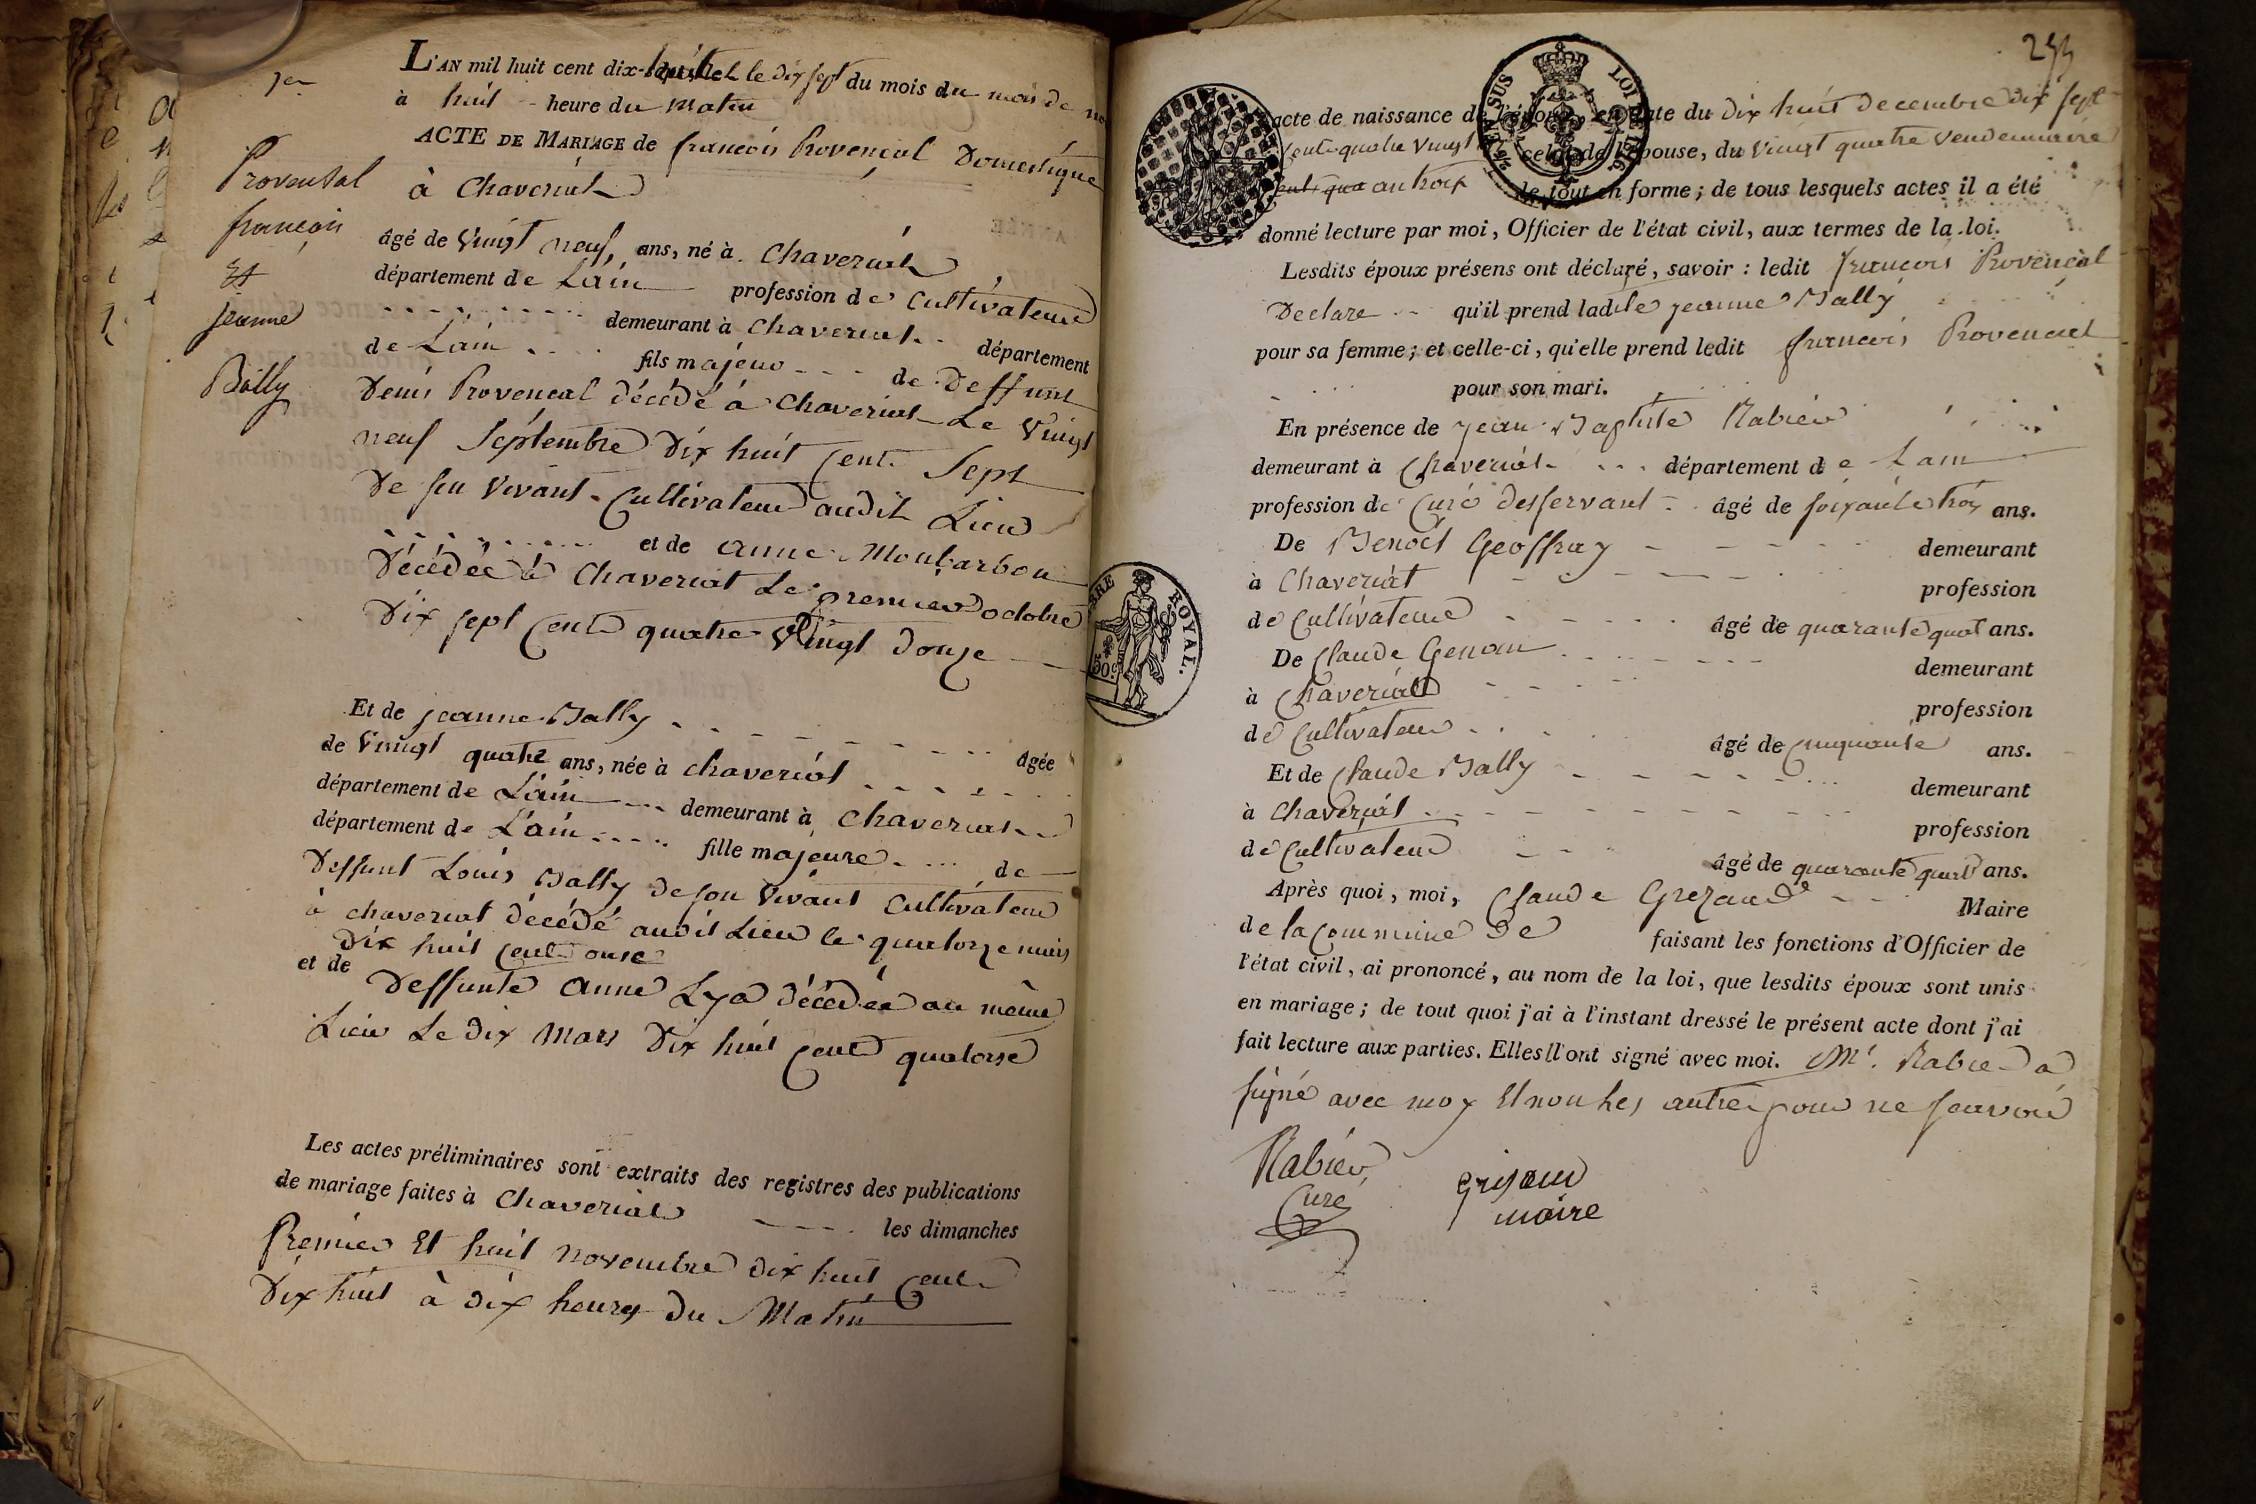 1er
Provensal
francois
Et
jeanne
Bally
L'AN mil huit cent dix-huit et le dix sept du mois du mois de
à huit heure du matin
ACTE DE MARIAGE de francois Provençal Domestique
à Chaveriat
âgé de Vingt neuf ans, né à Chaveriat
département de Lain profession de Cultivateur
demeurant à Chaveriat département
de Lain fils majeur de Deffunt
Denis Provencal décédé à Chaveriat Le Vingt
neuf Septembre Dix huit Cent Sept
De feu Vivant Cultivateur audit Lieu
et de anne Monbarbon
Décédée à Chaveriat Le premier octobre
Dix sept Cent quatre Vingt douze
Et de jeanne Bally âgée
de Vingt quatre ans, née à chaveriat
département de Lain demeurant à Chaveriat
département de Lain fille majeure de
Deffunt Louis Bally de son Vivant Cultivateur
à chaveriat décédé audit Lieu le quatorze mars
Dix huit Cent onse
et de Deffunte anne Lya décédée au même
Lieu Le dix Mars Dix huit Cent quatorse
Les actes préliminaires sont extraits des registres des publications
de mariage faites à Chaveriat les dimanches
Premier Et huit novembre dix huit Cent
Dix huit à dix heures du Matin
253
TIMBRE ROYAL.
50c
EN SUS
LOI DE 1816
l'acte de naissance de l'époux, en date du dix huit decembre dix sept
Cent quatre Vingt celui de l'épouse, du Vingt quatre Vendemiaire
an trois le tout en forme; de tous lesquels actes il a été
donné lecture par moi, Officier de l'état civil, aux termes de la loi.
Lesdits époux présens ont déclaré, savoir : ledit francois Provençal
Declare qu'il prend ladite jeanne Bally
pour sa femme; et celle-ci, qu'elle prend ledit francois Provencal
pour son mari.
En présence de jean Baptiste Rabier
demeurant à Chaveriat département de Lain
profession de Curé desservant âgé de soixante trois ans.
De Benoît Geoffray demeurant
à Chaveriat profession
de Cultivateur âgé de quarante quat ans.
De Claude Genou demeurant
à Chaveriat profession
de Cultivateur âgé de Cinquante ans.
Et de Claude Bally demeurant
à Chaveriat profession
de Cultivateur âgé de quarante quat ans.
Après quoi, moi, Claude Grezaud Maire
de la Commune De faisant les fonctions d'Officier de
l'état civil, ai prononcé, au nom de la loi, que lesdits époux sont unis
en mariage; de tout quoi j'ai à l'instant dressé le présent acte dont j'ai
fait lecture aux parties. Elles l'ont signé avec moi. Mr. Rabier a
signé avec moy Et non les autres pour ne scavoir
Rabier grisaud
Curé maire